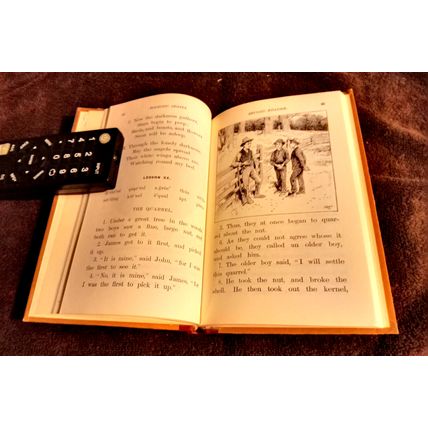 SECOND READER.
2. Now the darkness gathers,
Stars begin to peep,
Birds, and beasts, and flowers
Soon will be asleep.
Through the
May the angels spread
Their white wings above me,
Watching round my bed.
LESSON XX.
THE QUARREL.
1. Under a great tree in the woods,
two boys saw a fine, large nut, and
both ran to get it.
2. James got to it first, and picked
it up.
3. "It is mine," said John, "for I was
the first to see it."
4. "No, it is mine," said James, "for
I was the first to pick it up."
SECOND READER.
5. Thus, they at once began to quar-
rel about the nut.
6. As they could not agree whose it
should be, they called an older boy,
and asked him.
7. The older boy said, "I will settle
this quarrel."
8. He took the nut, and broke the
shell. He then took out the kernel,